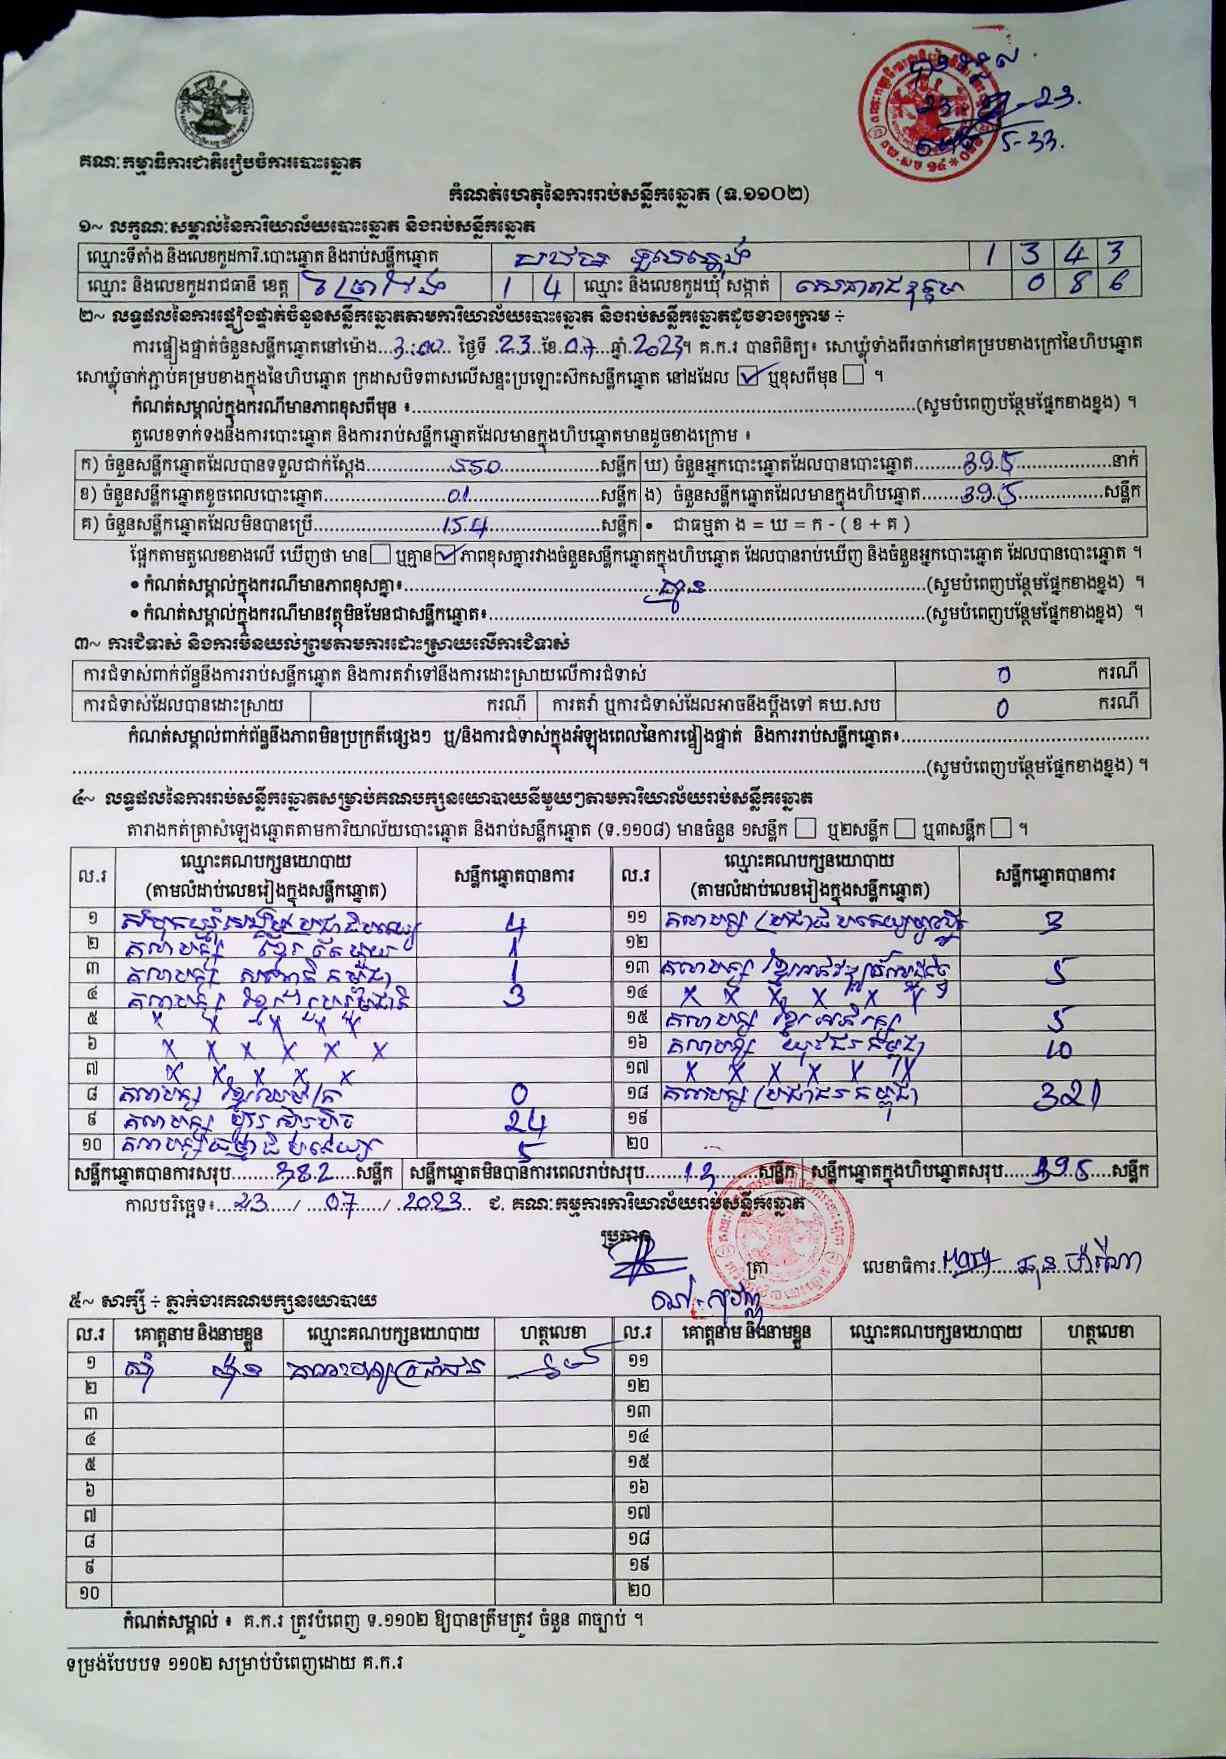 គណៈកម្មាធិការជាតិរៀបចំការបោះឆ្នោត
23 - 23.
5-33.
កំណត់ហេតុនៃការរាប់សន្លឹកឆ្នោត (ទ.១១០២)
១~ លក្ខណៈសម្គាល់នៃការិយាល័យបោះឆ្នោត និងរាប់សន្លឹកឆ្នោត
ឈ្មោះទីតាំង និងលេខកូដការិ.បោះឆ្នោត និងរាប់សន្លឹកឆ្នោត 1 3 4 3
ឈ្មោះ និងលេខកូដរាជធានី ខេត្ត ព្រៃវែង 1 4 ឈ្មោះ និងលេខកូដឃុំ សង្កាត់ 0 8 6
២~ លទ្ធផលនៃការផ្ទៀងផ្ទាត់ចំនួនសន្លឹកឆ្នោតតាមការិយាល័យបោះឆ្នោត និងរាប់សន្លឹកឆ្នោតដូចខាងក្រោម ÷
ការផ្ទៀងផ្ទាត់ចំនួនសន្លឹកឆ្នោតនៅម៉ោង...3:00... ថ្ងៃទី .23...ខែ.07....ឆ្នាំ.2023។ គ.ក.រ បានពិនិត្យ៖ សោឃ្លុំទាំងពីរចាក់នៅគម្របខាងក្រៅនៃហិបឆ្នោត
សោឃ្លុំចាក់ភ្ជាប់គម្របខាងក្នុងនៃហិបឆ្នោត ក្រដាសបិទពាសលើសន្ទះប្រឡោះស៊កសន្លឹកឆ្នោត នៅដដែល ☑ ឬខុសពីមុន ☐ ។
កំណត់សម្គាល់ក្នុងករណីមានភាពខុសពីមុន ៖..........(សូមបំពេញបន្ថែមផ្នែកខាងខ្នង) ។
តួលេខទាក់ទងនឹងការបោះឆ្នោត និងការរាប់សន្លឹកឆ្នោតដែលមានក្នុងហិបឆ្នោតមានដូចខាងក្រោម ៖
ក) ចំនួនសន្លឹកឆ្នោតដែលបានទទួលជាក់ស្តែង.....550.....សន្លឹក ឃ) ចំនួនអ្នកបោះឆ្នោតដែលបានបោះឆ្នោត.....395.....នាក់
ខ) ចំនួនសន្លឹកឆ្នោតខូចពេលបោះឆ្នោត.....01.....សន្លឹក ង) ចំនួនសន្លឹកឆ្នោតដែលមានក្នុងហិបឆ្នោត.....395.....សន្លឹក
គ) ចំនួនសន្លឹកឆ្នោតដែលមិនបានប្រើ.....154.....សន្លឹក • ជាធម្មតា ង = ឃ = ក - ( ខ + គ )
ផ្អែកតាមតួលេខខាងលើ ឃើញថា មាន ☐ ឬគ្មាន ☑ ភាពខុសគ្នារវាងចំនួនសន្លឹកឆ្នោតក្នុងហិបឆ្នោត ដែលបានរាប់ឃើញ និងចំនួនអ្នកបោះឆ្នោត ដែលបានបោះឆ្នោត ។
• កំណត់សម្គាល់ក្នុងករណីមានភាពខុសគ្នា៖.....គ្មាន.....(សូមបំពេញបន្ថែមផ្នែកខាងខ្នង) ។
• កំណត់សម្គាល់ក្នុងករណីមានវត្ថុមិនមែនជាសន្លឹកឆ្នោត៖..........(សូមបំពេញបន្ថែមផ្នែកខាងខ្នង) ។
៣~ ការជំទាស់ និងការមិនយល់ព្រមតាមការដោះស្រាយលើការជំទាស់
ការជំទាស់ពាក់ព័ន្ធនឹងការរាប់សន្លឹកឆ្នោត និងការតវ៉ាទៅនឹងការដោះស្រាយលើការជំទាស់ 0 ករណី
ការជំទាស់ដែលបានដោះស្រាយ ករណី ការតវ៉ា ឬការជំទាស់ដែលអាចនឹងប្តឹងទៅ គឃ.សប 0 ករណី
កំណត់សម្គាល់ពាក់ព័ន្ធនឹងភាពមិនប្រក្រតីផ្សេងៗ ឬ/និងការជំទាស់ក្នុងអំឡុងពេលនៃការផ្ទៀងផ្ទាត់ និងការរាប់សន្លឹកឆ្នោត៖..........
..........(សូមបំពេញបន្ថែមផ្នែកខាងខ្នង) ។
៤~ លទ្ធផលនៃការរាប់សន្លឹកឆ្នោតសម្រាប់គណបក្សនយោបាយនីមួយៗតាមការិយាល័យរាប់សន្លឹកឆ្នោត
តារាងកត់ត្រាសំឡេងឆ្នោតតាមការិយាល័យបោះឆ្នោត និងរាប់សន្លឹកឆ្នោត (ទ.១១០៨) មានចំនួន ១សន្លឹក ☐ ឬ២សន្លឹក ☐ ឬ៣សន្លឹក ☐ ។
ល.រ ឈ្មោះគណបក្សនយោបាយ (តាមលំដាប់លេខរៀងក្នុងសន្លឹកឆ្នោត) សន្លឹកឆ្នោតបានការ ល.រ ឈ្មោះគណបក្សនយោបាយ (តាមលំដាប់លេខរៀងក្នុងសន្លឹកឆ្នោត) សន្លឹកឆ្នោតបានការ
១ 4 ១១ គណបក្ស 3
២ គណបក្ស ខ្មែរតែមួយ 1 ១២
៣ គណបក្ស 1 ១៣ គណបក្ស ខ្មែរ 5
៤ គណបក្ស ខ្មែររួបរួមជាតិ 3 ១៤ X X X X X X
៥ X X X X X ១៥ គណបក្ស ខ្មែរអភិរក្ស 5
៦ X X X X X X ១៦ គណបក្ស យុវជនកម្ពុជា 10
៧ X X X X X ១៧ X X X X X X
៨ គណបក្ស 0 ១៨ គណបក្ស ប្រជាជនកម្ពុជា 321
៩ គណបក្ស ហ៊្វុនស៊ិនប៉ិច 24 ១៩
១០ គណបក្សធម្មាធិបតេយ្យ 5 ២០
សន្លឹកឆ្នោតបានការសរុប.....382.....សន្លឹក សន្លឹកឆ្នោតមិនបានការពេលរាប់សរុប.....13.....សន្លឹក សន្លឹកឆ្នោតក្នុងហិបឆ្នោតសរុប.....395.....សន្លឹក
កាលបរិច្ឆេទ៖...23..../ ...07..../ .2023.. ជ. គណៈកម្មការការិយាល័យរាប់សន្លឹកឆ្នោត
ប្រធាន
ត្រា លេខាធិការ..........
៥~ សាក្សី ÷ ភ្នាក់ងារគណបក្សនយោបាយ
ល.រ គោត្តនាម និងនាមខ្លួន ឈ្មោះគណបក្សនយោបាយ ហត្ថលេខា ល.រ គោត្តនាម និងនាមខ្លួន ឈ្មោះគណបក្សនយោបាយ ហត្ថលេខា
១ គណបក្សប្រជាជន ១១
២ ១២
៣ ១៣
៤ ១៤
៥ ១៥
៦ ១៦
៧ ១៧
៨ ១៨
៩ ១៩
១០ ២០
កំណត់សម្គាល់ ៖ គ.ក.រ ត្រូវបំពេញ ទ.១១០២ ឱ្យបានត្រឹមត្រូវ ចំនួន ៣ច្បាប់ ។
ទម្រង់បែបបទ ១១០២ សម្រាប់បំពេញដោយ គ.ក.រ